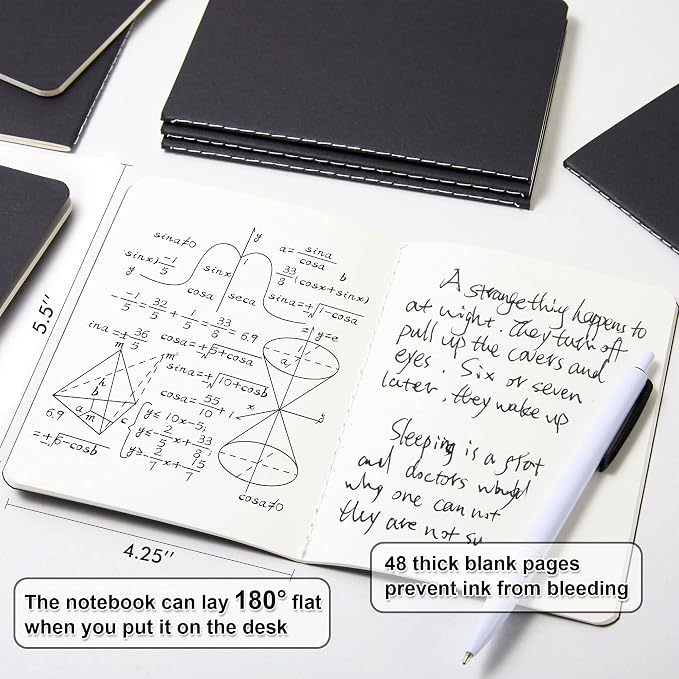 sina≠0
y
a = sina/cosa
sinx) -1/5
y
sinx
33/8 (cosx+sinx)
b
cosa
seca
sina=±√1-cosa
-1/5 = 32/5 + 1/5 = 33/8 = 6.9
y=e
ina=± 36/5
cosa=±√5+cosa
a,
m
m'
sina=±√10+cosb
h
b
cosa= 55/10 +1
x
y
a
m
c
6.9
y≤10x-5,
y≤-2/5x+33/8
y≥-2/7x+15/7
=±√5-cosb
cosa≠0
A strange thing happens to
at night. They turn off
pull up the covers and
eyes. Six or seven
later, they wake up
Sleeping is a great
and doctors would
why one can not
they are not su
5.5''
4.25''
The notebook can lay 180° flat
when you put it on the desk
48 thick blank pages
prevent ink from bleeding